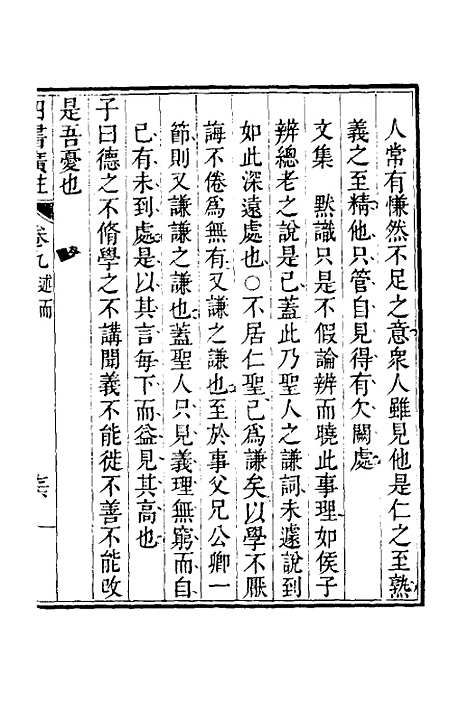 人常有慊然不足之意衆人雖見他是仁之至熟
義之至精他只管自見得有欠闕處
文集　默識只是不假論辨而曉此事理如侯子
辨總老之說是已蓋此乃聖人之謙詞未遽說到
如此深遠處也○不居仁聖已爲謙矣以學不厭
誨不倦爲無有又謙之謙也至於事父兄公卿一
節則又謙謙之謙也蓋聖人只見義理無窮而自
已有未到處是以其言每下而益見其高也
子曰德之不脩學之不講聞義不能徙不善不能改
是吾憂也
四書廣註　卷九　述而